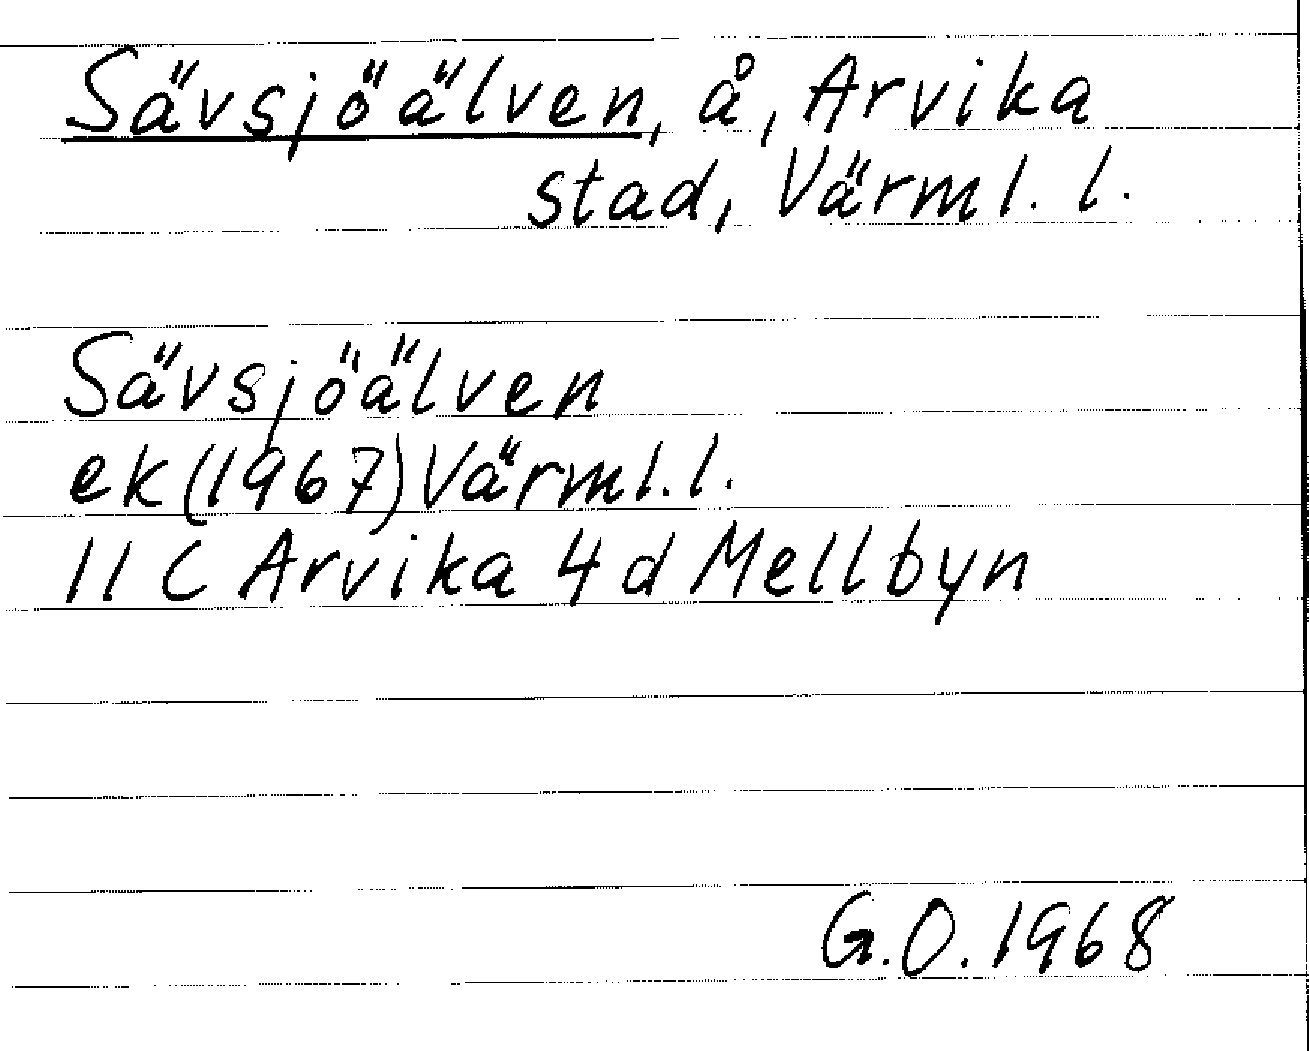 Sävsjöälven, å, Arvika
stad, Värml. l.
Sävsjöälven
ek(1967)Värml.l.
11 C Arvika 4 d Mellbyn
G.O.1968